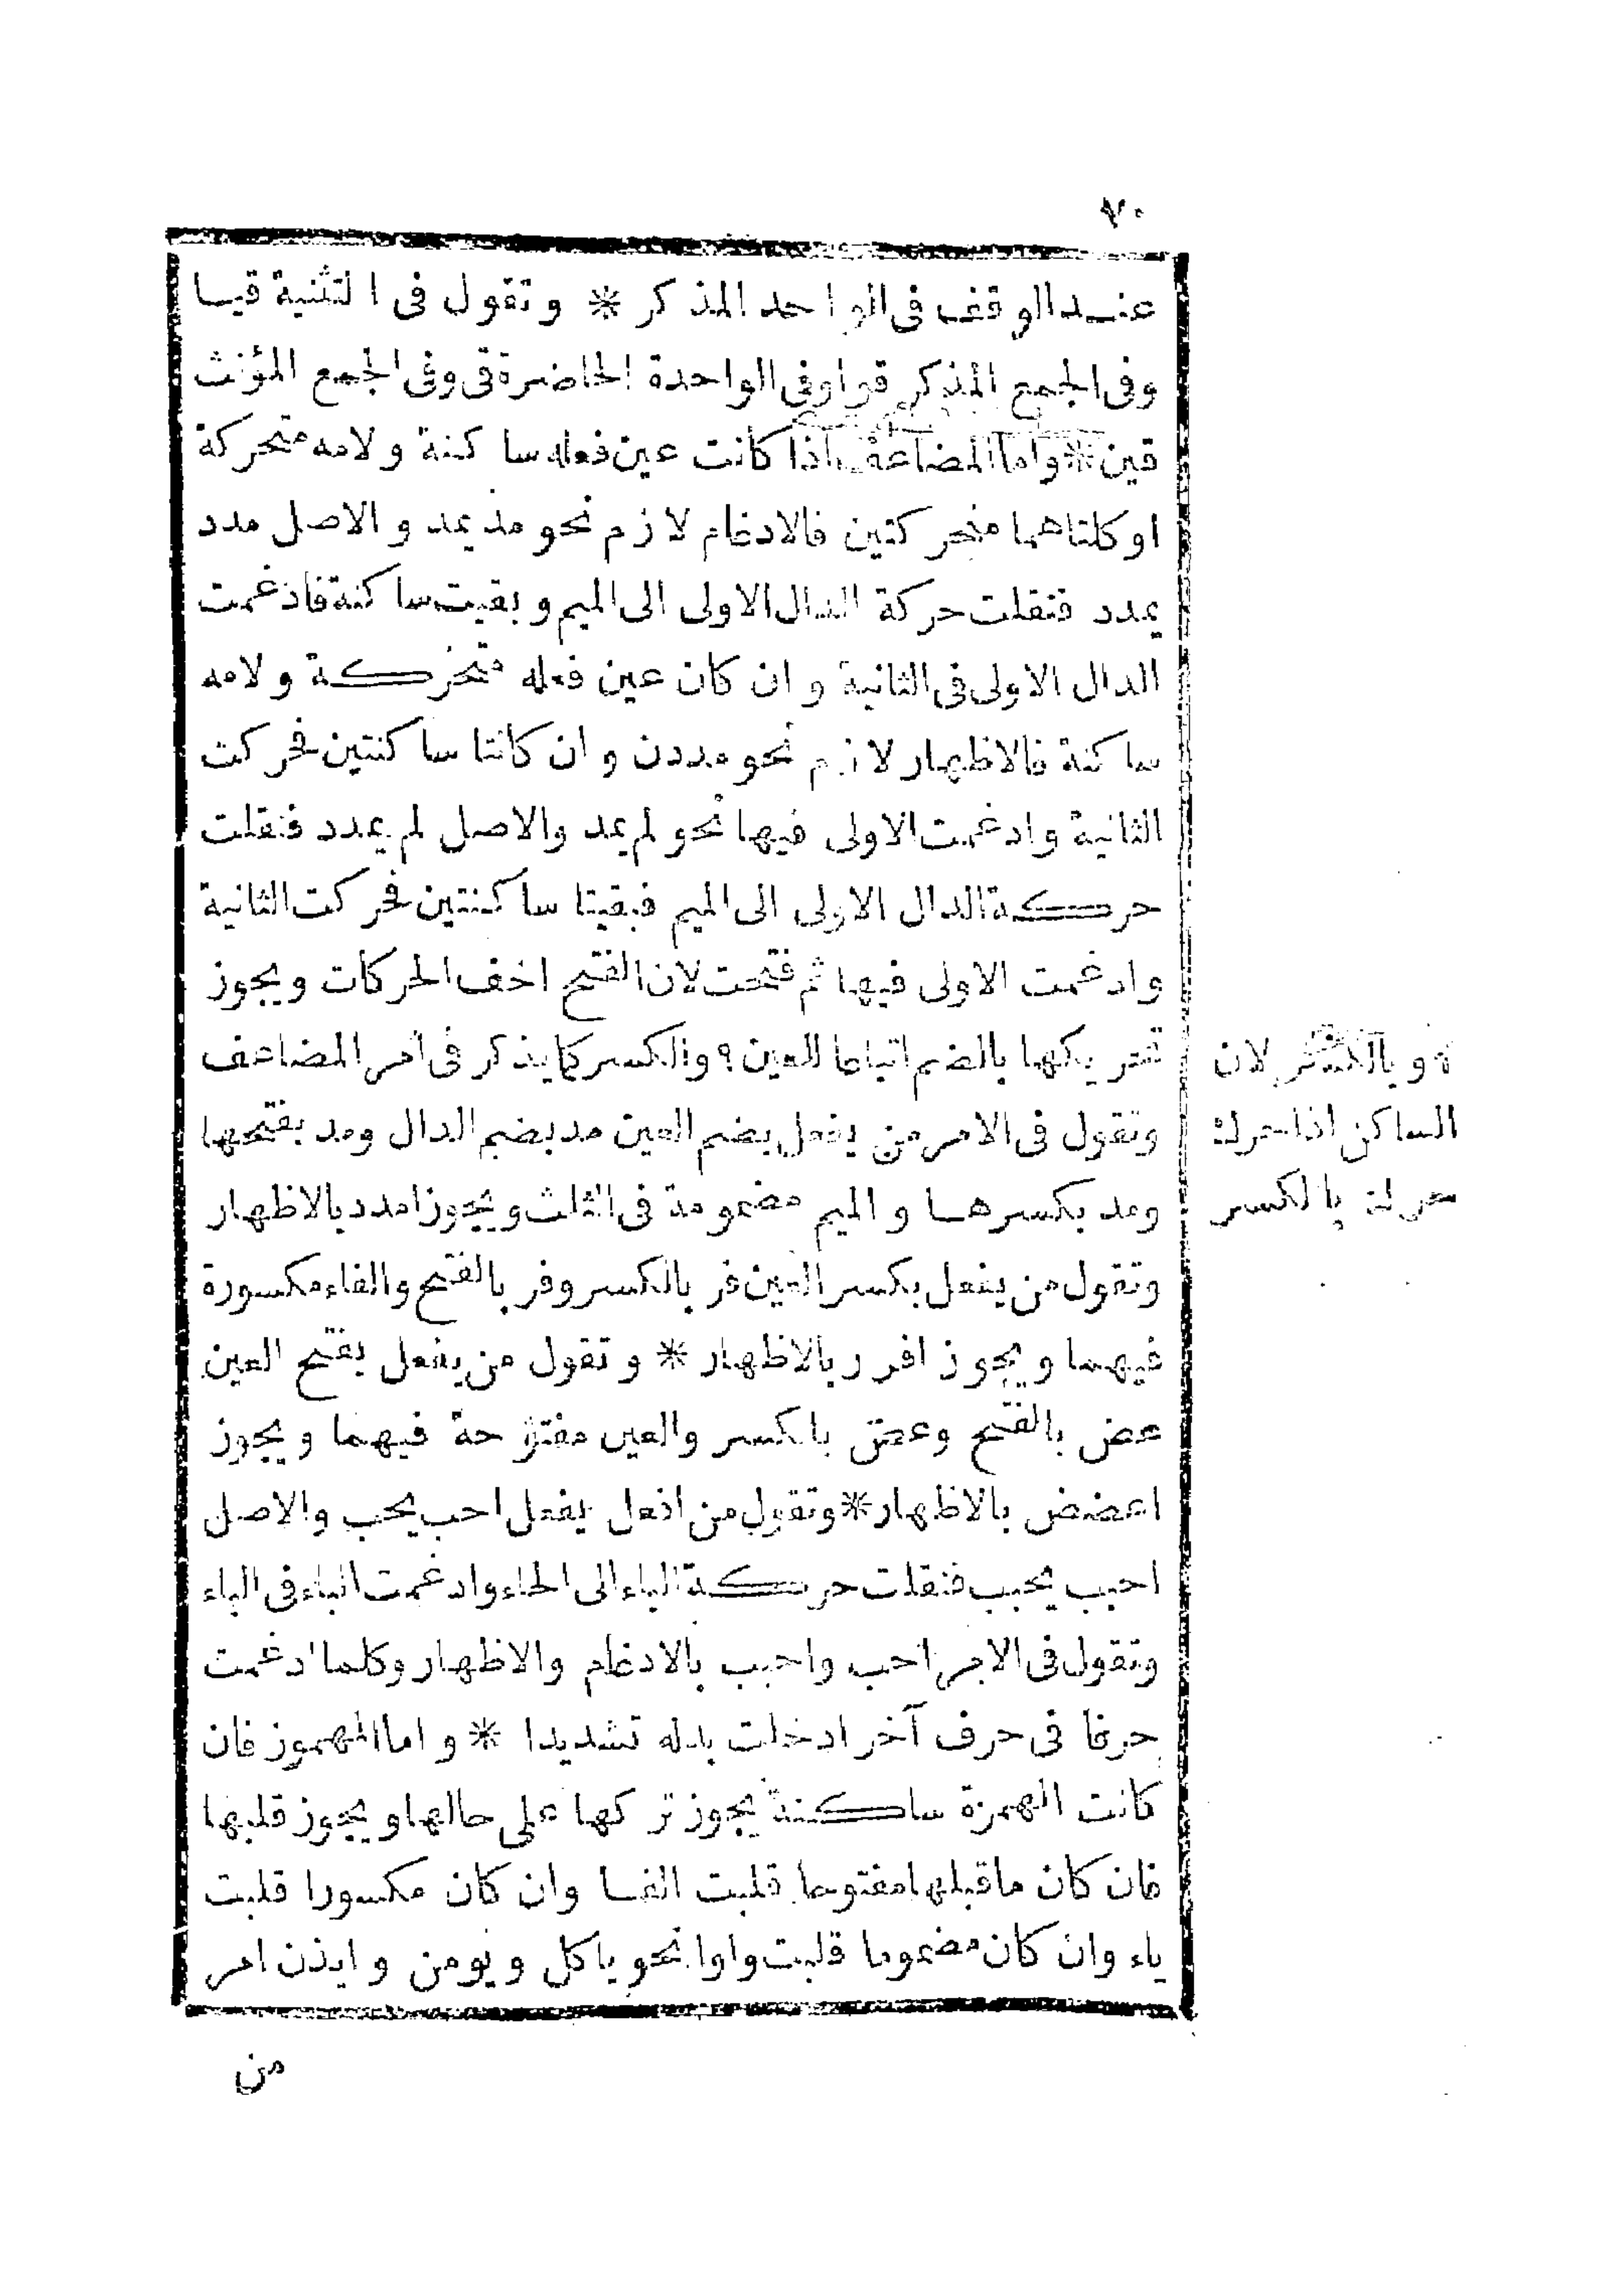 ٧٠
عند الوقف فى الواحد المذكر * وتقول فى التثنية قيا
وفى الجمع المذكر قوا وفى الواحدة الحاضرة قى وفى الجمع المؤنث
قين * واما المضاعف اذا كانت عين فعله ساكنة ولامه متحركة
او كلتاهما متحركتين فالادغام لازم نحو مد يمد والاصل مدد
يمدد فنقلت حركة الدال الاولى الى الميم وبقيت ساكنة فادغمت
الدال الاولى فى الثانية وان كان عين فعله متحركة ولامه
ساكنة فالاظهار لازم نحو مددن وان كانتا ساكنتين فحركت
الثانية وادغمت الاولى فيها نحو لم يمد والاصل لم يمدد فنقلت
حركة الدال الاولى الى الميم فبقيتا ساكنتين فحركت الثانية
وادغمت الاولى فيها ثم فتحت لان الفتح اخف الحركات ويجوز
تحريكها بالضم اتباعا للعين ٩ والكسر كما يذكر فى امر المضاعف
وتقول فى الامر من يفعل بضم العين مد بضم الدال ومد بفتحها
ومد بكسرها والميم مضمومة فى الثلث ويجوز امدد بالاظهار
وتقول من يفعل بكسر العين فر بالكسر وفر بالفتح والفاء مكسورة
فيهما ويجوز افرر بالاظهار * وتقول من يفعل بفتح العين
عض بالفتح وعض بالكسر والعين مفتوحة فيهما ويجوز
اعضض بالاظهار * وتقول من افعل يفعل احب يحب والاصل
احبب يحبب فنقلت حركة الباء الى الحاء وادغمت الباء فى الباء
وتقول فى الامر احب واحبب بالادغام والاظهار وكلما ادغمت
حرفا فى حرف آخر ادخلت بدله تشديدا * واما المهموز فان
كانت الهمزة ساكنة يجوز تركها على حالها ويجوز قلبها
فان كان ماقبلها مفتوحا قلبت الفا وان كان مكسورا قلبت
ياء وان كان مضموما قلبت واوا نحو ياكل ويومن وايذن امر
من
وبالكسر لان
الساكن اذا حرك
حرك بالكسر